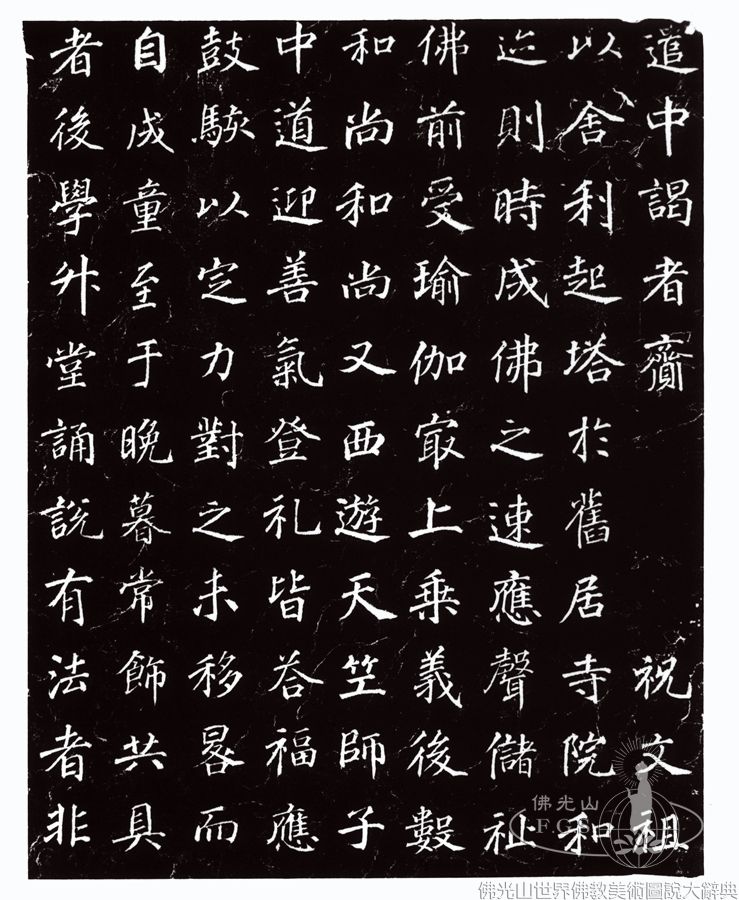 遣中謁者齎 祝文祖
以舍利起塔於舊居寺院和
迹則時成佛之速應聲儲祉
佛前受瑜伽㝡上乘義後數
和尚和尚又西遊天笁師子
中道迎善氣登礼皆荅福應
鼓駭以定力對之未移晷而
自成童至于晚暮常飾共具
者後學升堂誦說有法者非
佛光山
FGS
佛光山世界佛教美術圖說大辭典